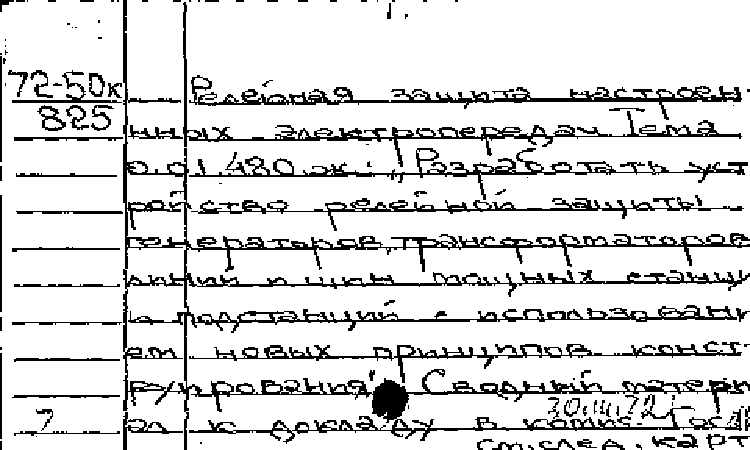 72-50к Релейная защита настроен-
825 нных электропередач Тема
0.01.480 эк.: „Разработать уст
ройство релейной защиты
генераторов, трансформаторов
линий и шин мощных станци
и подстанций с использовани
ем новых принципов конст-
руирования" Сводный матери
30.III.72г
ал к докладу в комис. Гос
см.след. карт